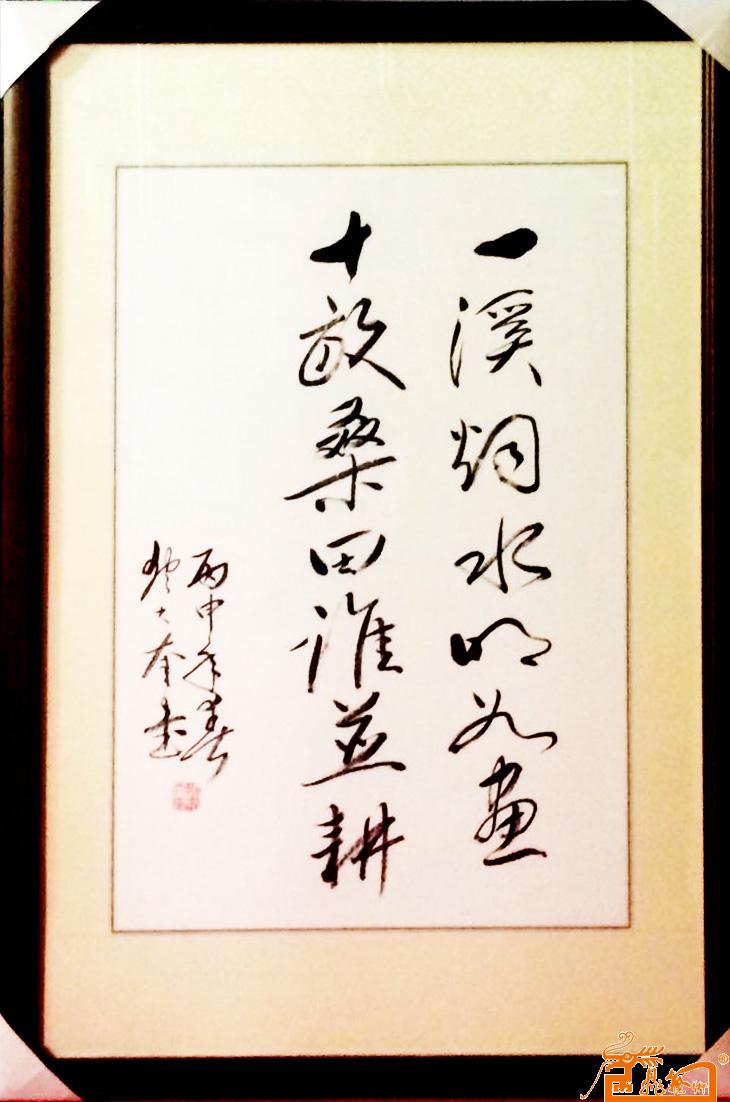 一溪烟水明如画
十亩桑田谁並耕
丙申年春
大奎书